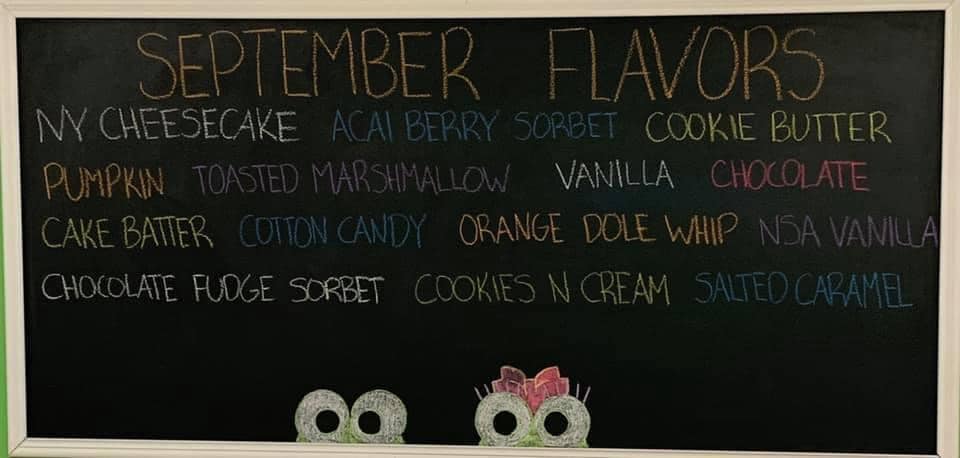 SEPTEMBER FLAVORS
NY CHEESECAKE ACAI BERRY SORBET COOKIE BUTTER
PUMPKIN TOASTED MARSHMALLOW VANILLA CHOCOLATE
CAKE BATTER COTTON CANDY ORANGE DOLE WHIP NSA VANILLA
CHOCOLATE FUDGE SORBET COOKIES N CREAM SALTED CARAMEL